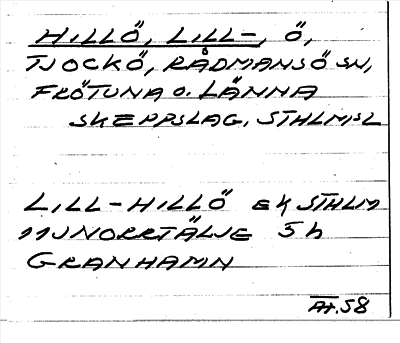 HILLÖ, LILL-, Ö,
TJOCKÖ, RÅDMANSÖ SN,
FRÖTUNA O. LÄNNA
SKEPPSLAG, STHLMSL
LILL-HILLÖ EK STHLM
11J NORRTÄLJE 5h
GRANHAMN
At.58